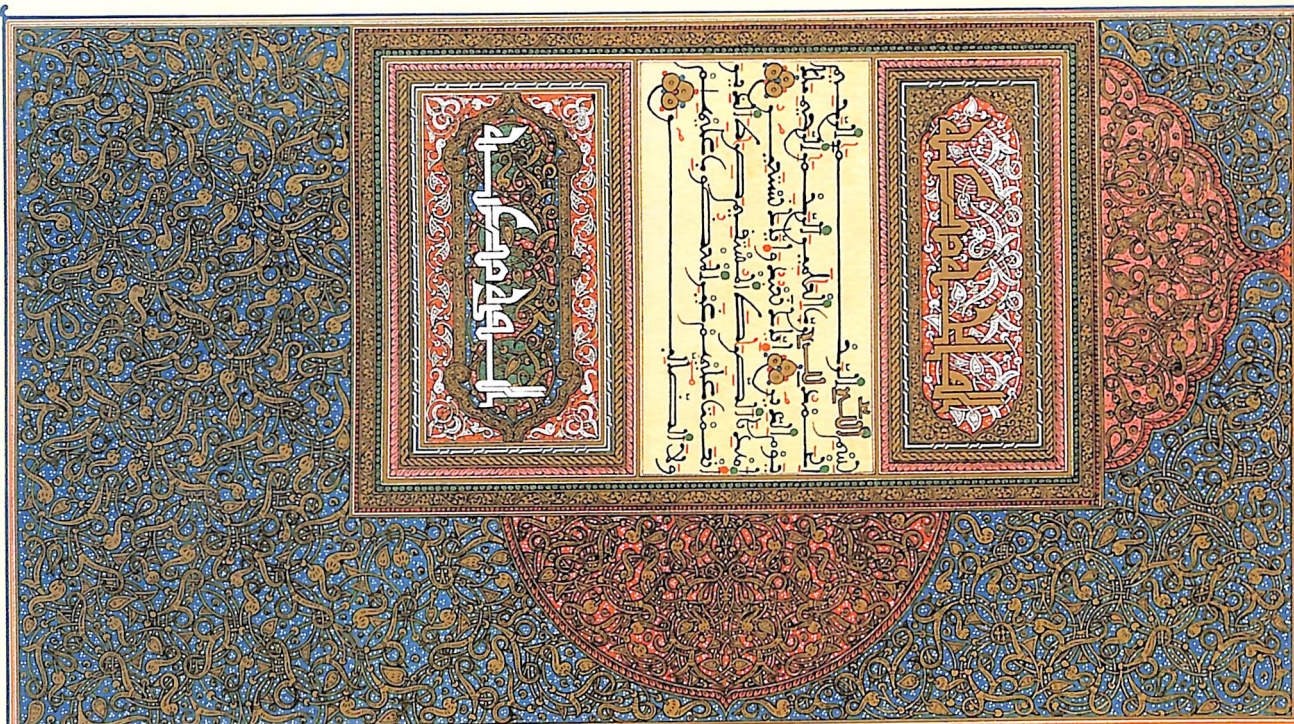 بسم الله الرحمن الرحيم
الحمد لله رب العلمين الرحمن الرحيم ملك
يوم الدين إياك نعبد وإياك نستعين
اهدنا الصرط المستقيم صرط الذين
أنعمت عليهم غير المغضوب عليهم
ولا الضالين